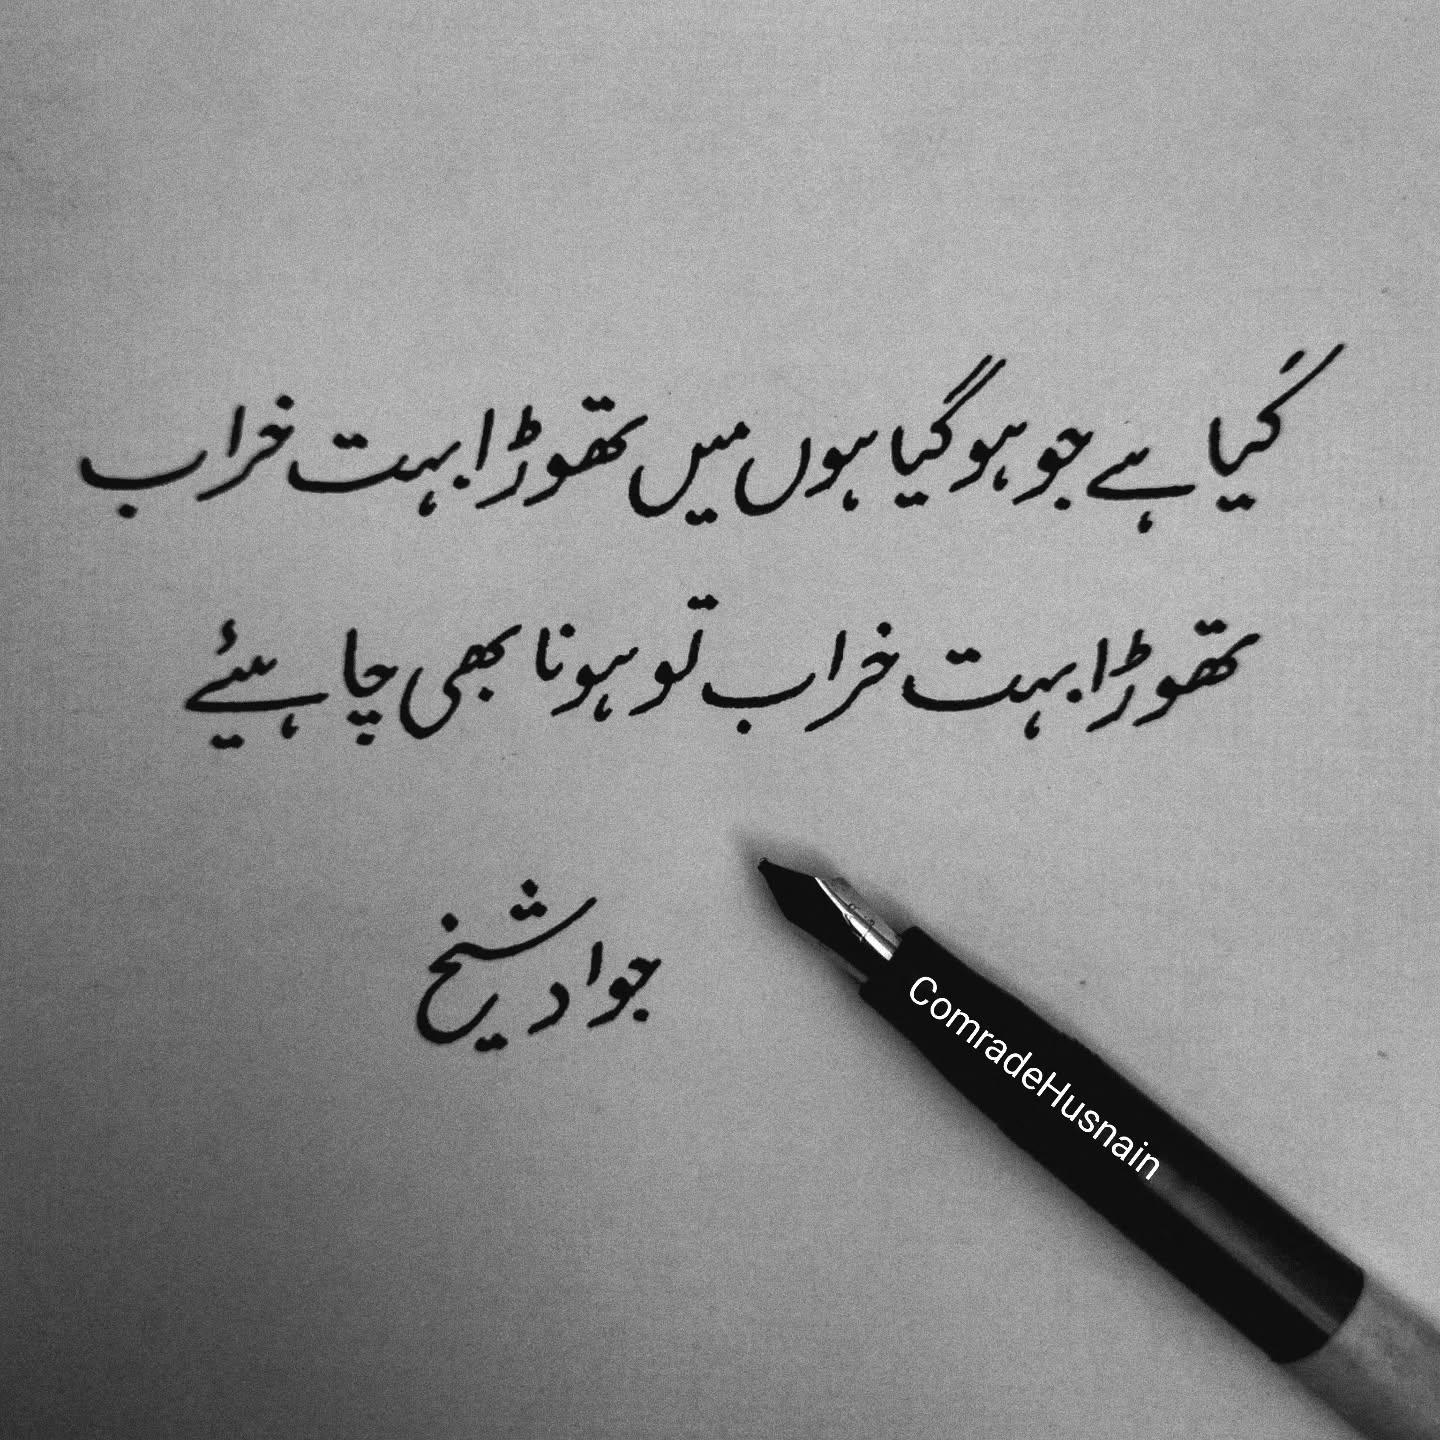 کیا ہے جو ہو گیا ہوں میں تھوڑا بہت خراب
تھوڑا بہت خراب تو ہونا بھی چاہئیے
جواد شیخ
ComradeHusnain